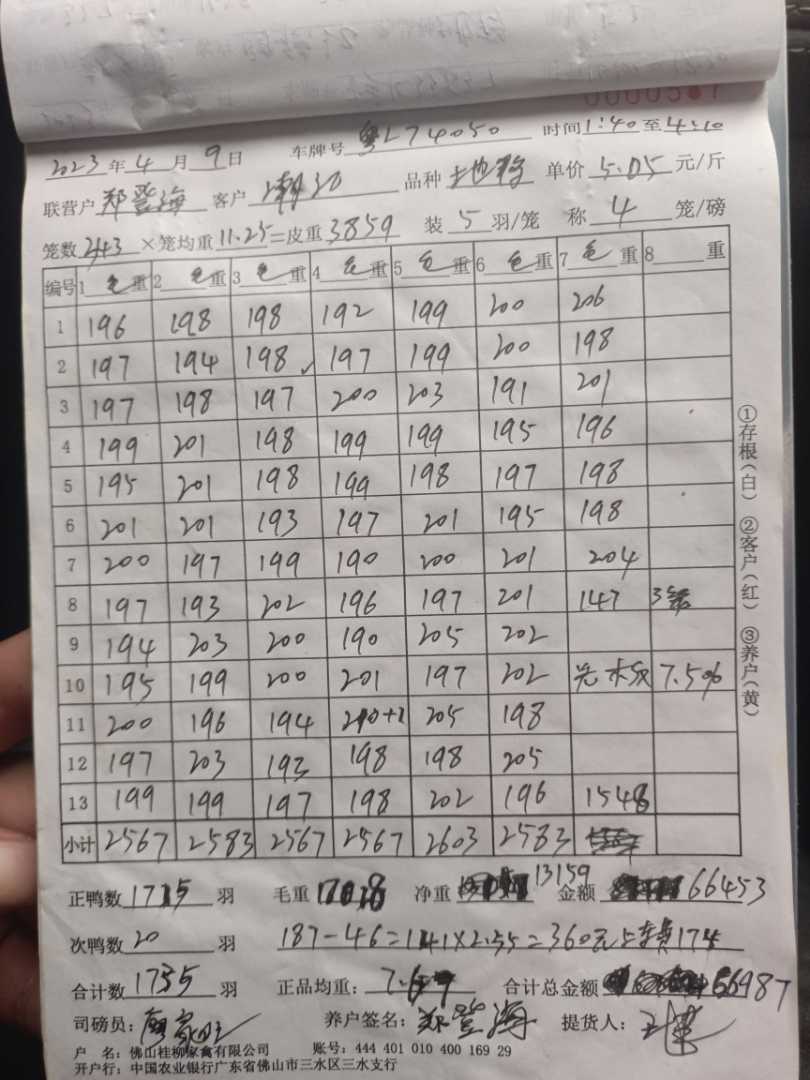 2023年4月9日 车牌号粤L74050 时间1:40至4:10
联营户郑登海 客户 品种 单价5.05元/斤
笼数343×笼均重11.25=皮重3859 装5羽/笼 称4笼/磅
编号 1毛重 2毛重 3毛重 4毛重 5毛重 6毛重 7毛重 8重
1 196 198 198 192 199 200 206
2 197 194 198 197 199 200 198
3 197 198 197 200 203 191 201
4 199 201 198 199 199 195 196
5 195 201 198 199 198 197 198
6 201 201 193 197 201 195 198
7 200 197 199 190 200 201 204
8 197 193 202 196 197 201 147 3笼
9 194 203 200 190 205 202
10 195 199 200 201 197 202 7.5%
11 200 196 194 205 198
12 197 203 193 198 198 205
13 199 199 197 198 202 196 1548
小计 2567 2583 2567 2567 2603 2583
正鸭数1715羽 毛重17018 净重13159 金额66453
次鸭数20羽 187-46=141×2.55=360元 174
合计数1735羽 正品均重: 合计总金额66987
司磅员: 养户签名:郑登海 提货人:
户 名:佛山桂柳家禽有限公司 账号:444 401 010 400 169 29
开户行:中国农业银行广东省佛山市三水区三水支行
①存根(白) ②客户(红) ③养户(黄)